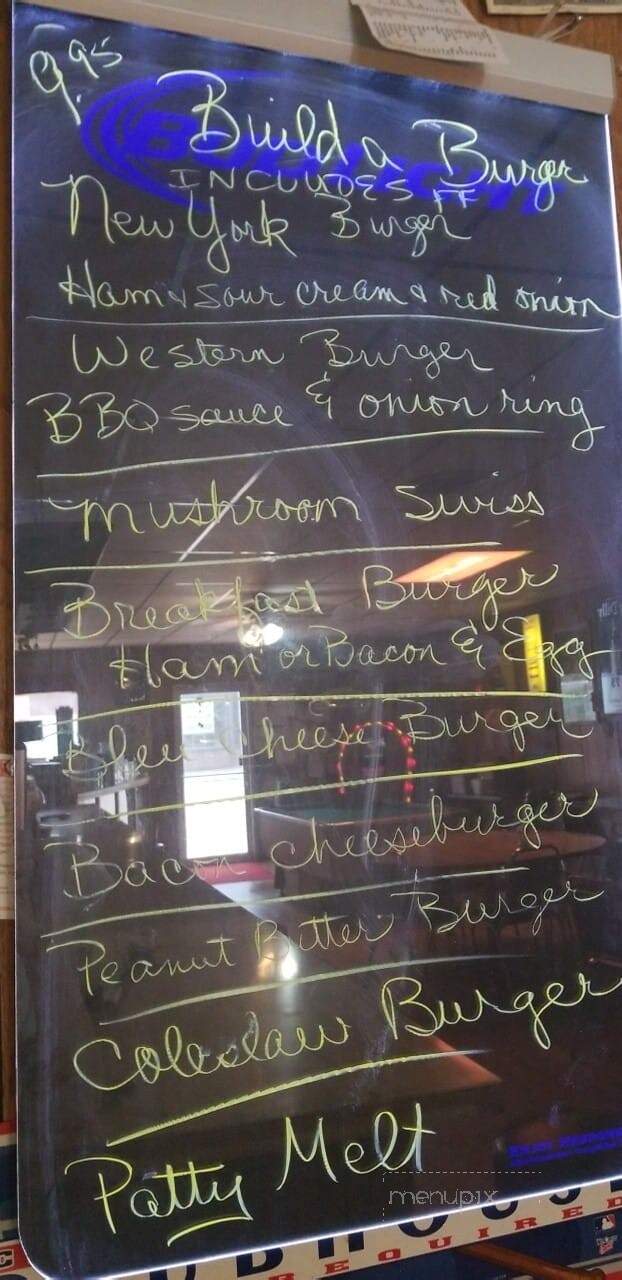 9.95
Build a Burger
INCLUDES FF
New York Burger
Ham & Sour cream & red onion
Western Burger
BBQ sauce & onion ring
Mushroom Swiss
Breakfast Burger
Ham or Bacon & Egg
Bleu Cheese Burger
Bacon Cheeseburger
Peanut Butter Burger
Coleslaw Burger
Patty Melt
menupix
REQUIRED